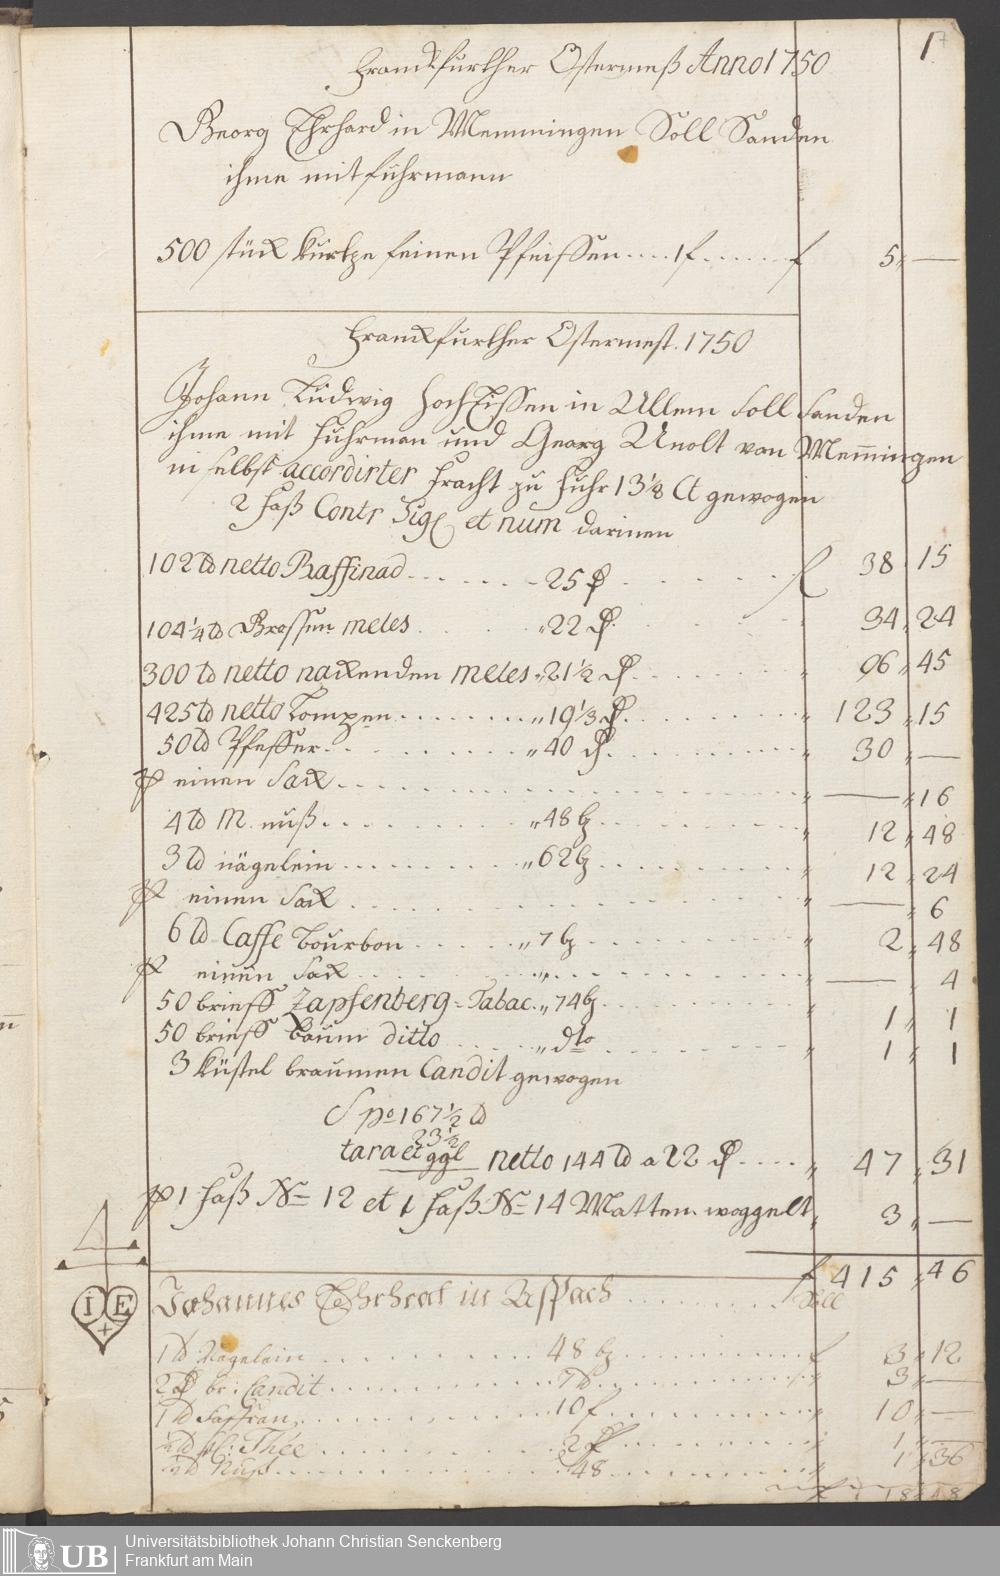 1
Franckfurther Ostermeß Anno 1750
Georg Ehrhard in Memmingen Soll Sanden
ihme mit fuhrmann
500 stück kurtze feinen Pfeiffen .... 1f ...... f 5 " —
Franckfurther Ostermest. 1750
Johann Ludwig in Ullem soll sanden
ihme mit fuhrman und Georg Unolt von Mem̅ingen
in selbst accordirter fracht zu fuhr 13 1/8 Ct gewogen
2 faß Contr Sig et num darinen
102 ℔ netto Raffinad ....... 25 ₰ f 38 " 15
104 1/4 ℔ Grossen meles " 22 ₰ " 34 " 24
300 ℔ netto nackenden meles " 21 1/2 ₰ " 96 " 45
425 ℔ netto Lompen ........ " 19 1/3 ₰ " 123 " 15
50 ℔ Pfeffer " 40 ₰ " 30 " —
einen Sack " — " 16
4 ℔ M. nuß " 48 bz " 12 " 48
3 ℔ nägelein " 62 bz " 12 " 24
einen Sack " — " 6
6 ℔ Caffe Bourbon " 7 bz " 2 " 48
einen Sack " — " 4
50 brieff Zapfenberg = Tabac " 74 bz " 1 " 1
50 brieff baum ditto " dto " 1 " 1
3 küstel braunen Candit gewogen
Spo 167 1/2 ℔
23 1/2
tara et ggl netto 144 ℔ a 22 ₰ .... " 47 " 31
1 faß No 12 et 1 faß No 14 Matten " 3 " —
f 415 " 46
I E
Johannes in Aspach Soll
1 ℔ Nägelein 48 bz f 3 " 12
2 br: Candit 3 " —
1 ℔ Saffran 10 f " 10 " —
Thée 1 " —
1/2 ℔ Nuß 48 " 1 " 36
18 " 48
UB Universitätsbibliothek Johann Christian Senckenberg
Frankfurt am Main